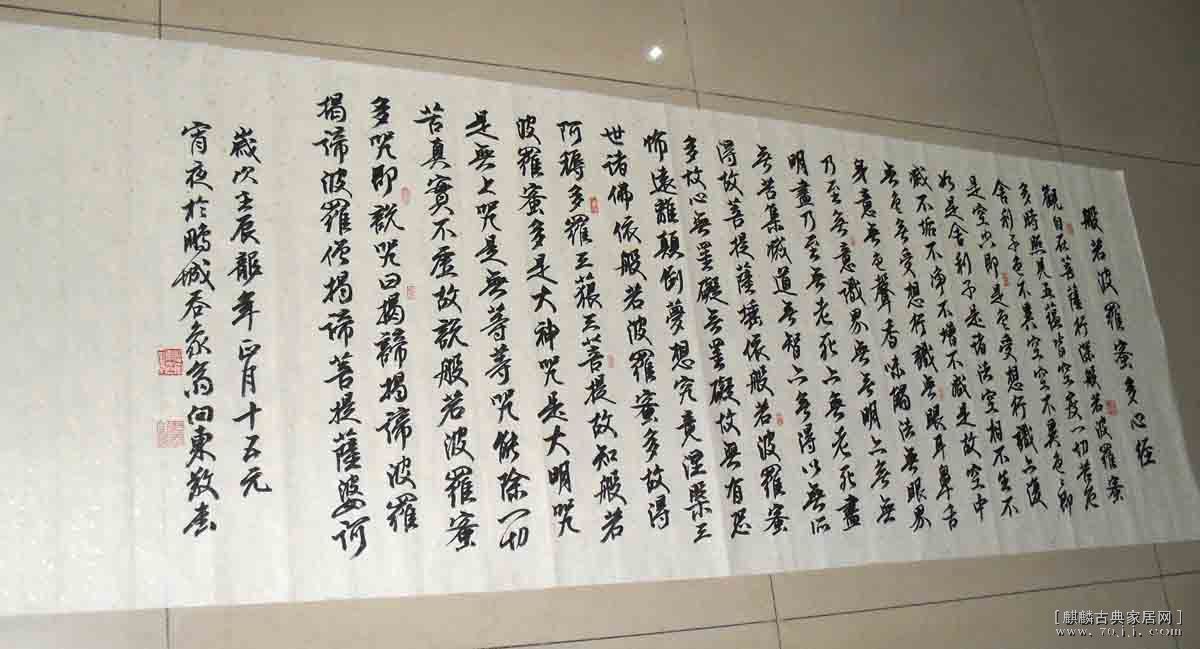 般若波羅蜜多心經
觀自在菩薩行深般若波羅蜜
多時照見五蘊皆空度一切苦厄
舍利子色不異空空不異色色即
是空空即是色受想行識亦復
如是舍利子是諸法空相不生不
滅不垢不淨不增不減是故空中
無色無受想行識無眼耳鼻舌
身意無色聲香味觸法無眼界
乃至無意識界無無明亦無無
明盡乃至無老死亦無老死盡
無苦集滅道無智亦無得以無所
得故菩提薩埵依般若波羅蜜
多故心無罣礙無罣礙故無有恐
怖遠離顛倒夢想究竟涅槃三
世諸佛依般若波羅蜜多故得
阿耨多羅三藐三菩提故知般若
波羅蜜多是大神咒是大明咒
是無上咒是無等等咒能除一切
苦真實不虛故說般若波羅蜜
多咒即說咒曰揭諦揭諦波羅
揭諦波羅僧揭諦菩提薩婆訶
歲次壬辰龍年正月十五元
宵夜於鵬城吞象翁向東敬書
[麒麟古典家居网]
www.7qjj.com